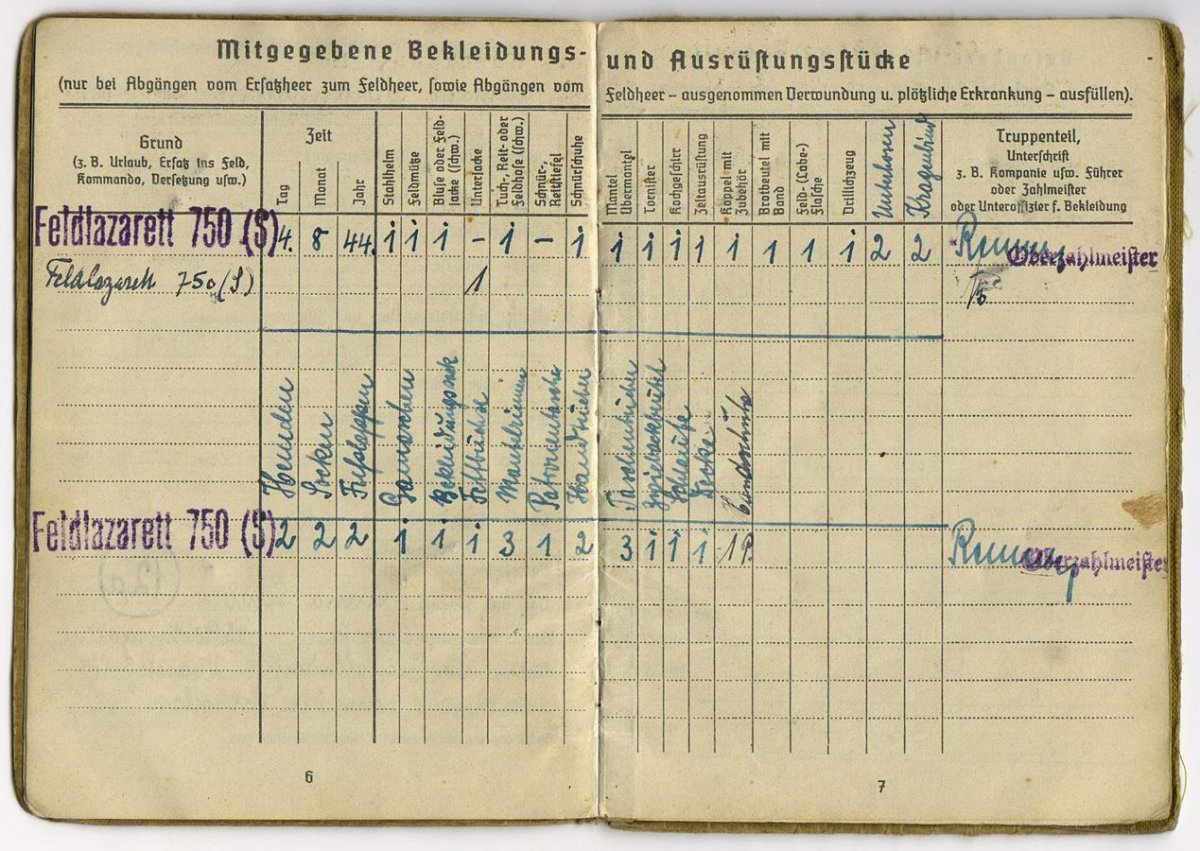 Mitgegebene Bekleidungs- und Ausrüstungsstücke
(nur bei Abgängen vom Ersatzheer zum Feldheer, sowie Abgängen vom Feldheer – ausgenommen Verwundung u. plötzliche Erkrankung – ausfüllen).
Grund
(z. B. Urlaub, Ersatz ins Feld,
Kommando, Versetzung usw.)
Zeit
Tag
Monat
Jahr
Stahlhelm
Feldmütze
Bluse oder Feld-
jacke (schw.)
Unterjacke
Tuch-, Reit- oder
Feldhose (schw.)
Schnür-,
Reitstiefel
Schnürschuhe
Mantel
Übermantel
Tornister
Kochgeschirr
Zeltausrüstung
Koppel mit
Zubehör
Brotbeutel mit
Band
Feld-(Labe-)
Flasche
Drillichzeug
Unterhosen
Kragenbind
Truppenteil,
Unterschrift
z. B. Kompanie usw. Führer
oder Zahlmeister
oder Unteroffizier f. Bekleidung
Feldlazarett 750 (S) 4. 8 44. 1 1 1 – 1 – 1 1 1 1 1 1 1 1 1 2 2 Oberzahlmeister
Feldlazarett 750 (S) 1
Hemden
Socken
Fußlappen
Gamaschen
Bekleidungssack
Fettbüchse
Mantelriemen
Patronentasche
Handtücher
Taschentücher
Zwiebackbeutel
Schlaufe
Decke
Handschuhe
Feldlazarett 750 (S) 2 2 2 1 1 1 3 1 2 3 1 1 1 1 P. Oberzahlmeister
6
7